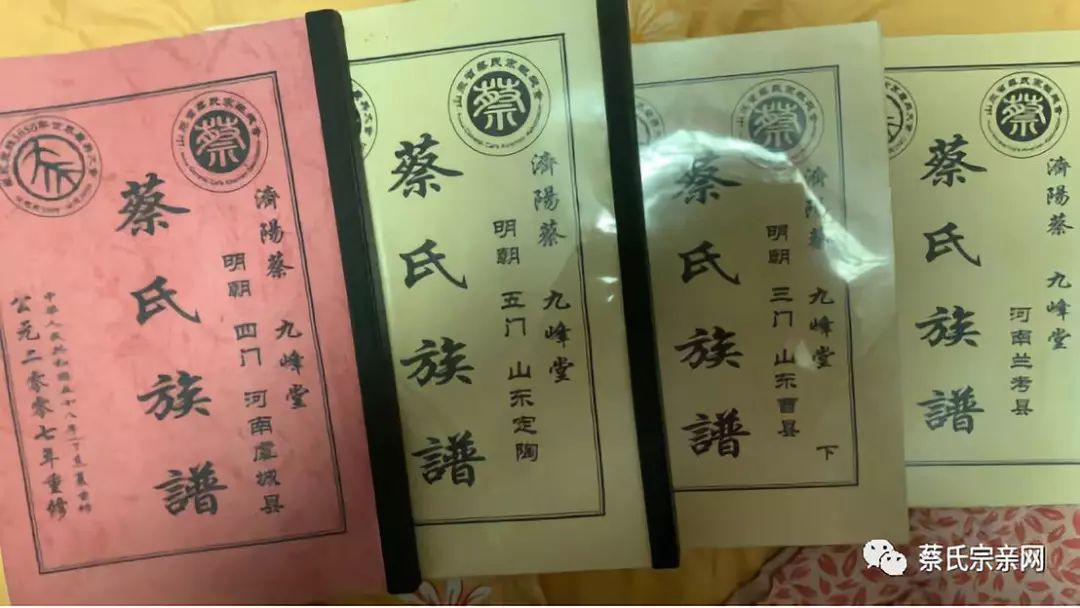 濟陽蔡 九峰堂
明朝 四门 河南虞城县
蔡氏族譜
公元二零零七年重修
蔡
濟陽蔡 九峰堂
明朝 五门 山东定陶
蔡氏族譜
蔡
濟陽蔡 九峰堂
明朝 三门 山东曹县
下
蔡氏族譜
蔡
濟陽蔡 九峰堂
河南兰考县
蔡氏族譜
蔡
蔡氏宗亲网